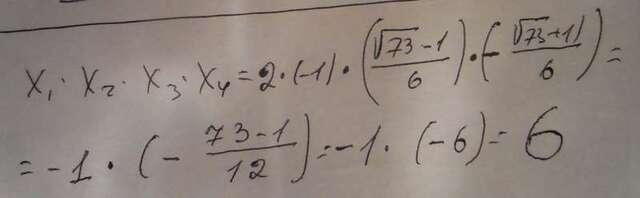 X₁ · X₂ · X₃ · X₄ = 2 · (-1) · ((√73 - 1)/6) · (- (√73 + 1)/6) =
= -1 · (- (73 - 1)/12) = -1 · (-6) = 6